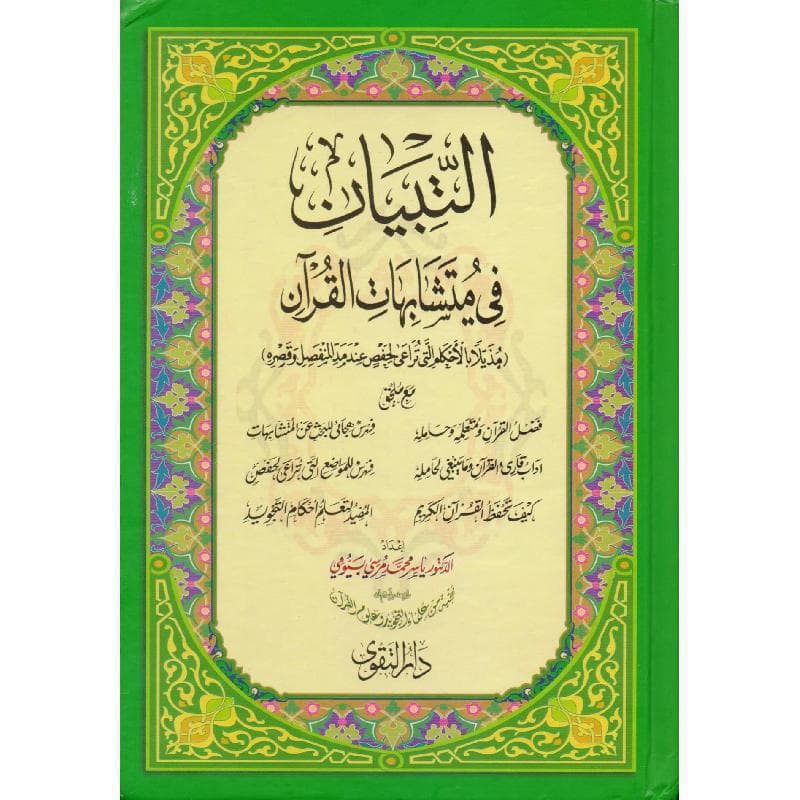 التِّبيَان
فِي مُتَشَابِهَاتِ القُرْآن
(مُذَيَّلاً بالأحكام التي تُراعى لحفص عند مد المنفصل وقصره)
مع ملحق
فضل القرآن ومُتعلمه وحامله
فهرس هجائي للبحث عن المتشابهات
آداب قارئ القرآن وما ينبغي لحامله
فهرس للمواضع التي تراعى لحفص
كيف تحفظ القرآن الكريم
المفيد لتعلم أحكام التجويد
إعداد
الدكتور ياسر محمد مرسي بيومي
من علماء التجويد وعلوم القرآن
دار التقوى